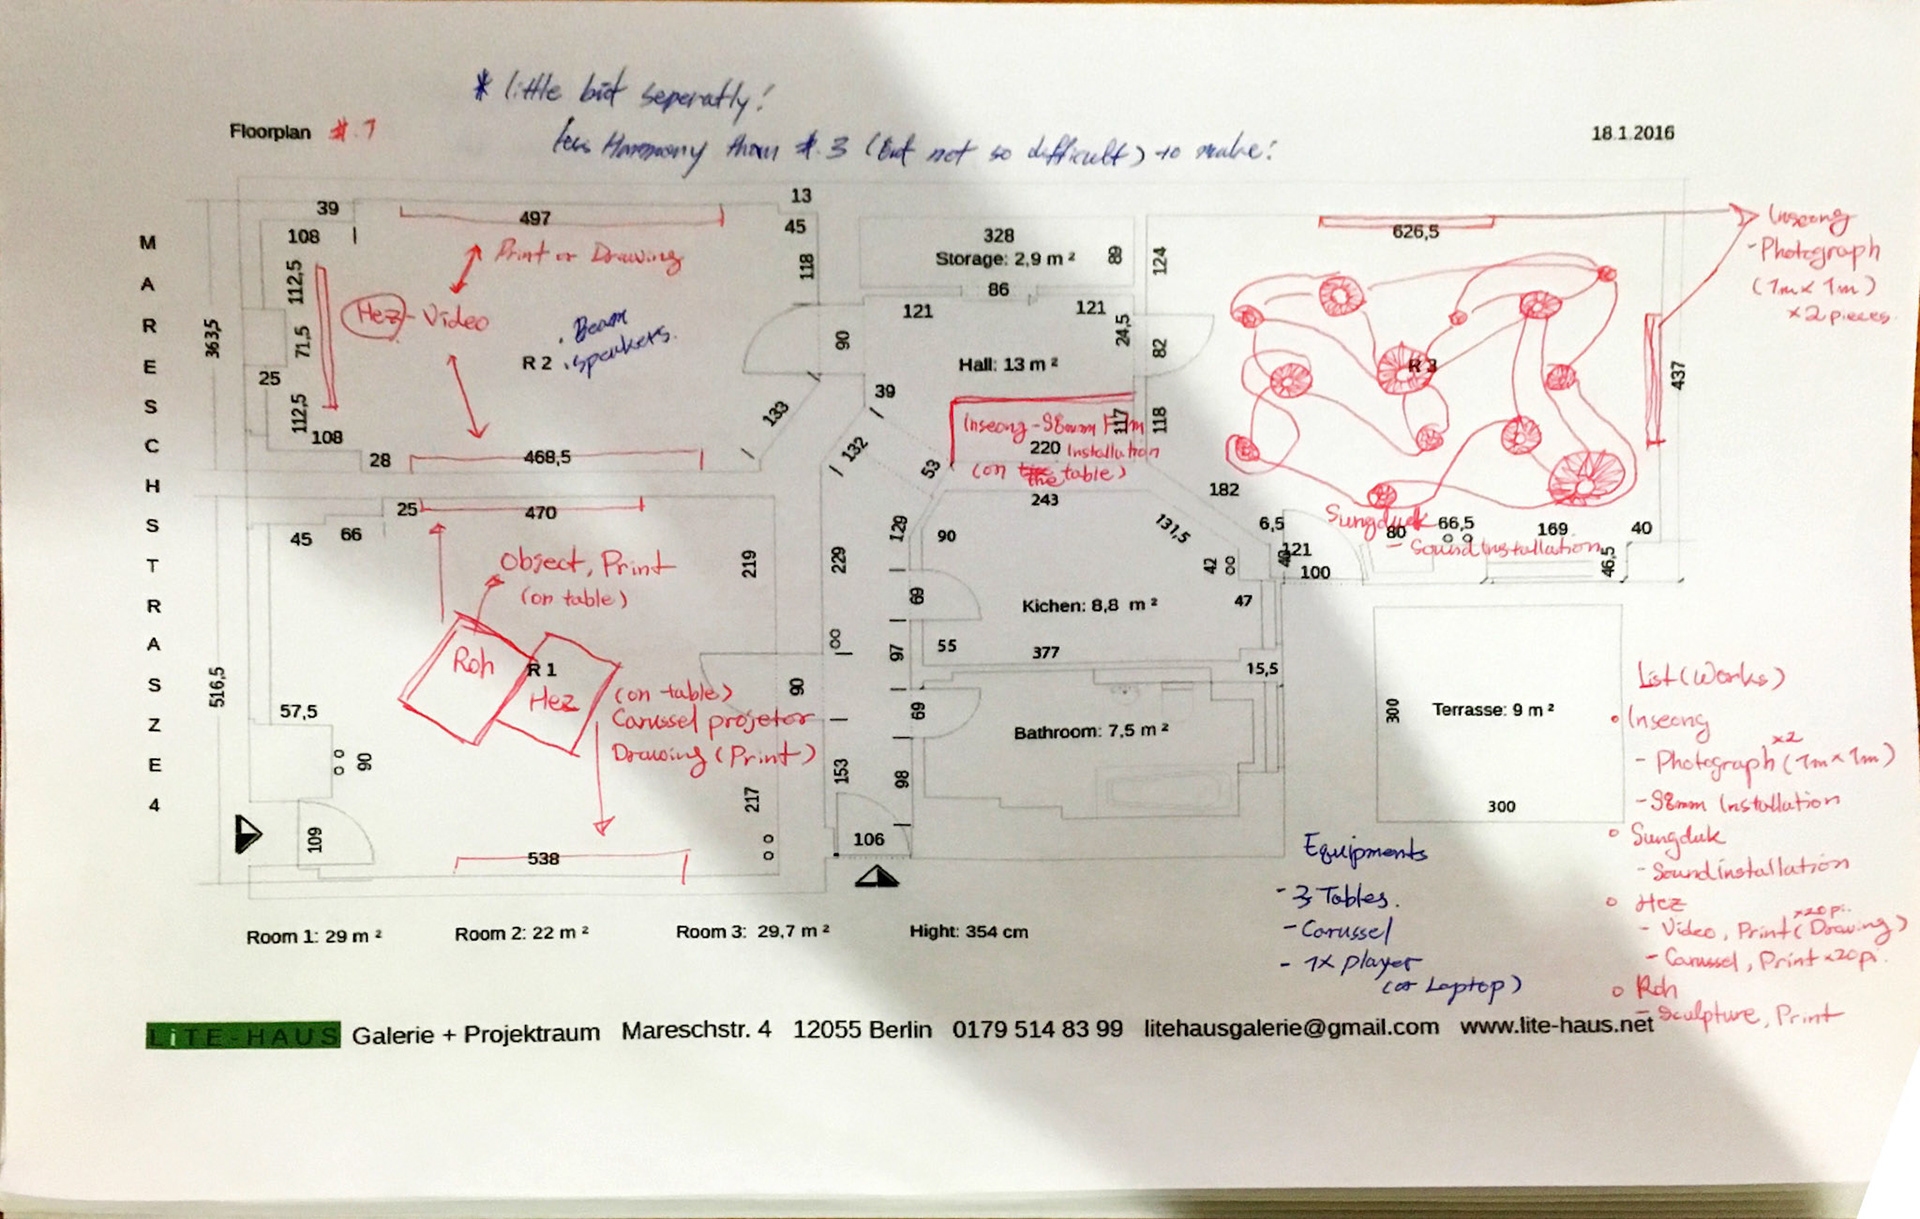 * little bit seperatly!
Floorplan #.1
less Harmony than #.3 (But not so difficult) to make!
18.1.2016
MARESCHSTRASZE 4
39
497
13
45
108
112,5
118
Print or Drawing
363,5
Hez - Video
71,5
R 2
. Beam
. speakers.
25
112,5
108
28
468,5
90
133
132
39
53
328
Storage: 2,9 m ²
89
86
121
121
24,5
Hall: 13 m ²
124
82
118
117
Inseong - 98mm Film
220 Installation
(on the table)
243
626,5
R 3
437
Inseong
- Photograph
(1m x 1m)
x 2 pieces
182
Sungduk
- Sound installation
6,5
80
66,5
169
40
121
100
46,5
25
470
45
66
Object, Print
(on table)
219
229
129
90
131,5
42
516,5
Roh
R 1
Hez
(on table)
Carussel projetor
Drawing (Print)
57,5
90
109
90
217
538
69
97
69
153
98
106
Kichen: 8,8 m ²
47
55
377
15,5
Bathroom: 7,5 m ²
300
Terrasse: 9 m ²
300
List (Works)
Inseong
- Photograph (1m x 1m) x2
- 98mm Installation
Sungduk
- Sound installation
Hez
- Video, Print (Drawing) x20pi.
- Carussel, Print x20pi.
Roh
- Sculpture, Print
Equipments
- 3 Tables.
- Carussel
- 1x player
(or Laptop)
Room 1: 29 m ²
Room 2: 22 m ²
Room 3: 29,7 m ²
Hight: 354 cm
LiTE-HAUS Galerie + Projektraum Mareschstr. 4 12055 Berlin 0179 514 83 99 litehausgalerie@gmail.com www.lite-haus.net